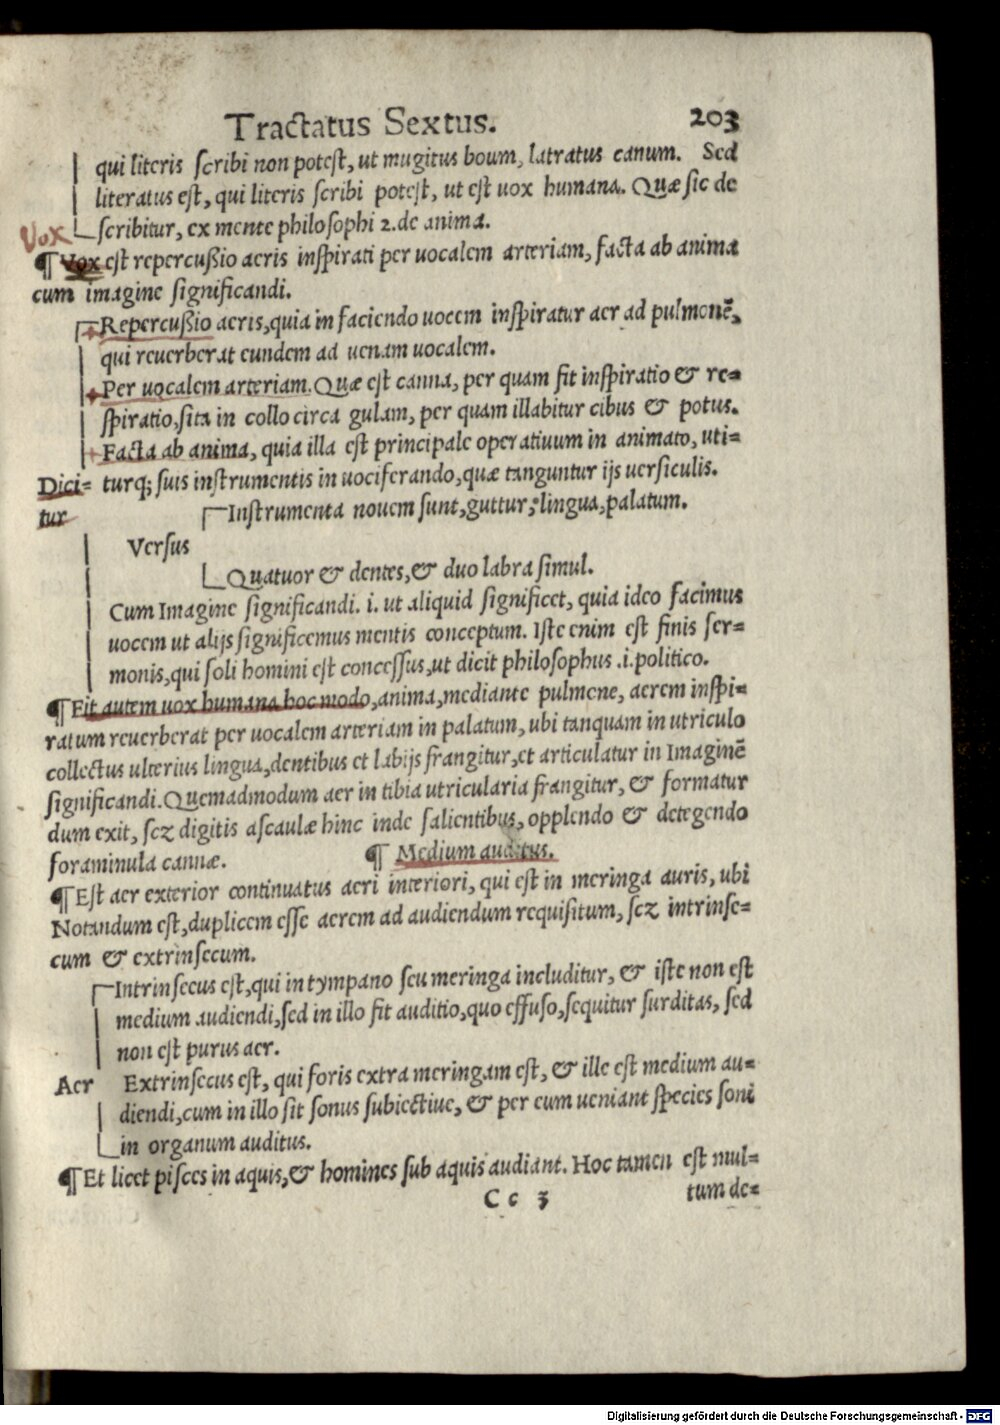 Tractatus Sextus. 203
qui literis scribi non potest, ut mugitus boum, latratus canum. Sed
literatus est, qui literis scribi potest, ut est uox humana. Quæ sic de
scribitur, ex mente philosophi 2. de anima.
Vox
¶ Vox est repercußio aeris inspirati per uocalem arteriam, facta ab anima
cum imagine significandi.
Repercußio aeris, quia in faciendo uocem inspiratur aer ad pulmonē,
qui reuerberat eundem ad uenam uocalem.
Per uocalem arteriam. Quæ est canna, per quam fit inspiratio & re=
spiratio, sita in collo circa gulam, per quam illabitur cibus & potus.
Facta ab anima, quia illa est principale operatiuum in animato, uti=
Dici= turq; suis instrumentis in uociferando, quæ tanguntur ijs uersiculis.
tur
Instrumenta nouem sunt, guttur, lingua, palatum.
Versus
Quatuor & dentes, & duo labra simul.
Cum Imagine significandi. i. ut aliquid significet, quia ideo facimus
uocem ut alijs significemus mentis conceptum. Iste enim est finis ser=
monis, qui soli homini est concessus, ut dicit philosophus .i. politico.
¶ Fit autem uox humana hoc modo, anima, mediante pulmone, aerem inspi=
ratum reuerberat per uocalem arteriam in palatum, ubi tanquam in utriculo
collectus ulterius lingua, dentibus et labijs frangitur, et articulatur in Imaginē
significandi. Quemadmodum aer in tibia utricularia frangitur, & formatur
dum exit, scz digitis ascaulæ hinc inde salientibus, opplendo & detegendo
foraminula cannæ.
¶ Medium auditus.
¶ Est aer exterior continuatus aeri interiori, qui est in meringa auris, ubi
Notandum est, duplicem esse aerem ad audiendum requisitum, scz intrinse=
cum & extrinsecum.
Intrinsecus est, qui in tympano seu meringa includitur, & iste non est
medium audiendi, sed in illo fit auditio, quo effuso, sequitur surditas, sed
non est purus aer.
Aer Extrinsecus est, qui foris extra meringam est, & ille est medium au=
diendi, cum in illo sit sonus subiectiue, & per eum ueniant species soni
in organum auditus.
¶ Et licet pisces in aquis, & homines sub aquis audiant. Hoc tamen est mul=
Cc 3 tum de=
Digitalisierung gefördert durch die Deutsche Forschungsgemeinschaft - DFG